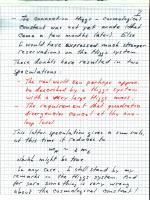 - The connection Higgs - Cosmological
Constant was not yet made that
Came a few months later! Else
I would have expressed much stronger
reservations on the Higgs system.
These doubts have resulted in two
speculations
- The real world can perhaps approx
be described by a Higgs system
with a very large Higgs mass
- The requirement that quadratic
divergencies cancel at the one
loop level
This latter speculation gives a sum rule,
at this time it reduces to
which might be true.
In any case, I still stand by my
remarks on the Higgs system. And
for sure something is very wrong
about the cosmological constant!